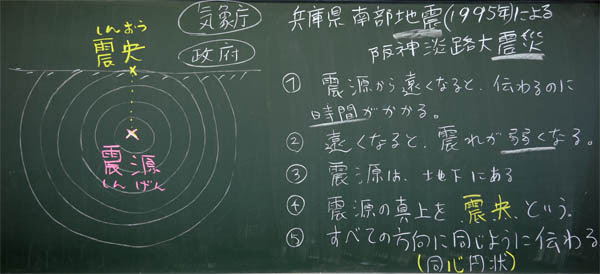 しんおう
震央
気象庁
政府
震源
しんげん
兵庫県南部地震(1995年)による
阪神淡路大震災
① 震源から遠くなると、伝わるのに
時間がかかる。
② 遠くなると、震れが弱くなる。
③ 震源は、地下にある
④ 震源の真上を震央という。
⑤ すべての方向に同じように伝わる
(同心円状)